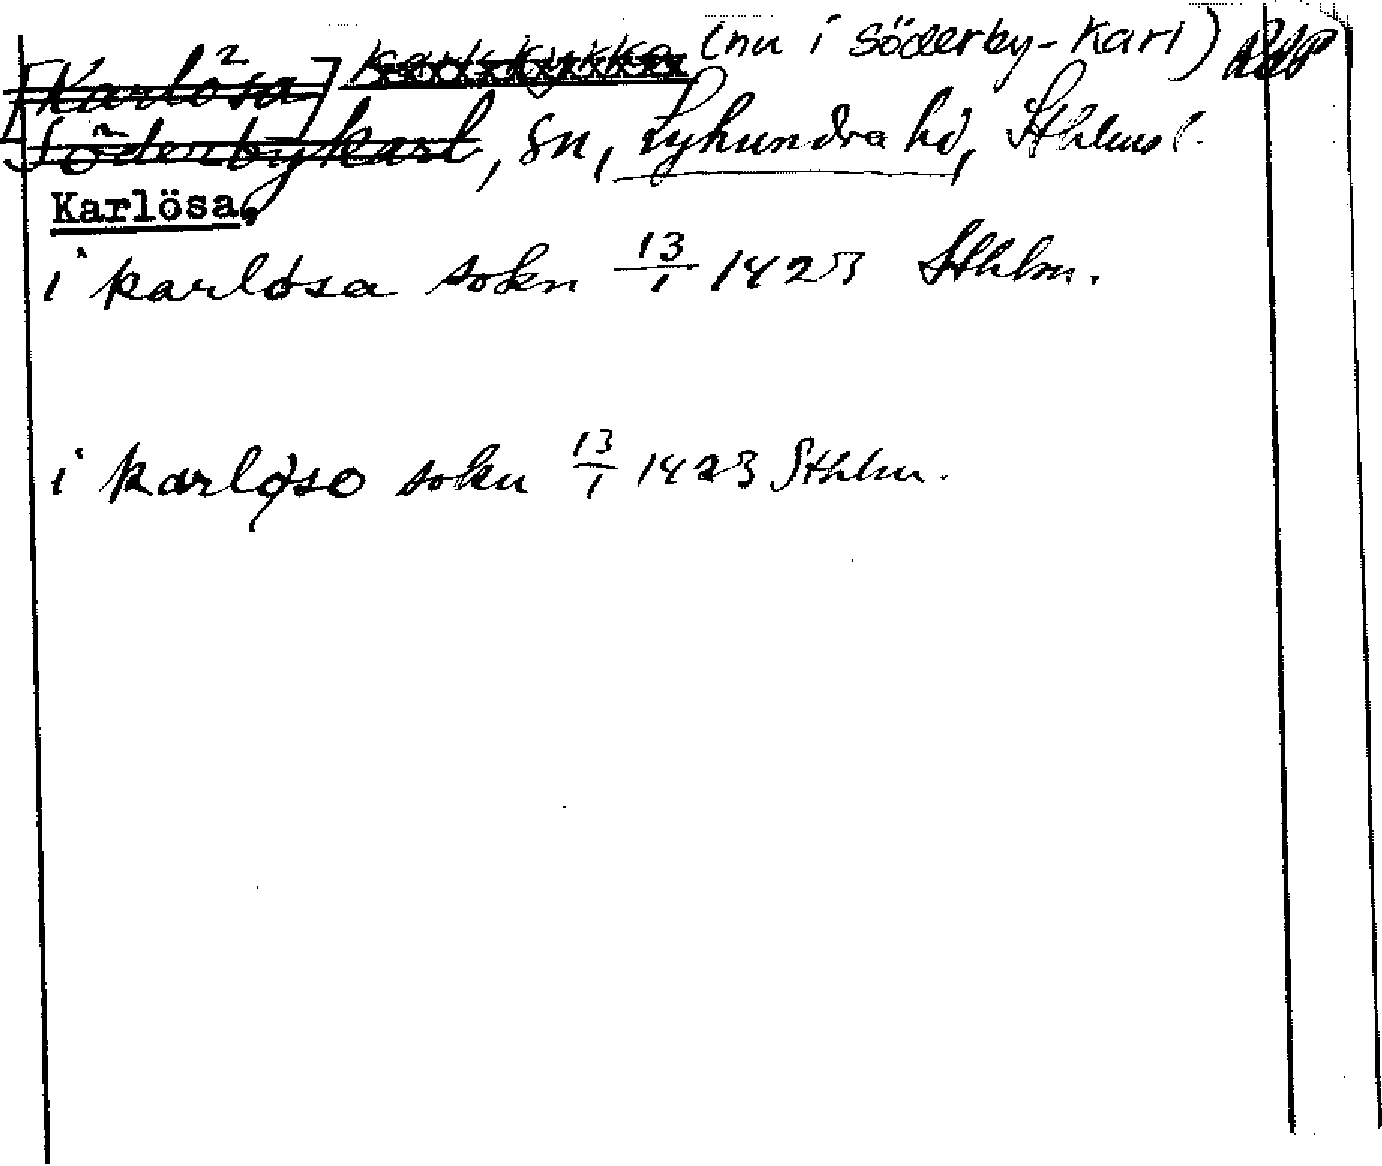 [Karlösa] Karlskyrka (nu i Söderby-Karl)
Söderbykarl, sn, Lyhundra hd, Sthlms l.
Karlösa,
i karløsa sokn 13/1 1423 Sthlm.
i karløso sokn 13/1 1423 Sthlm.